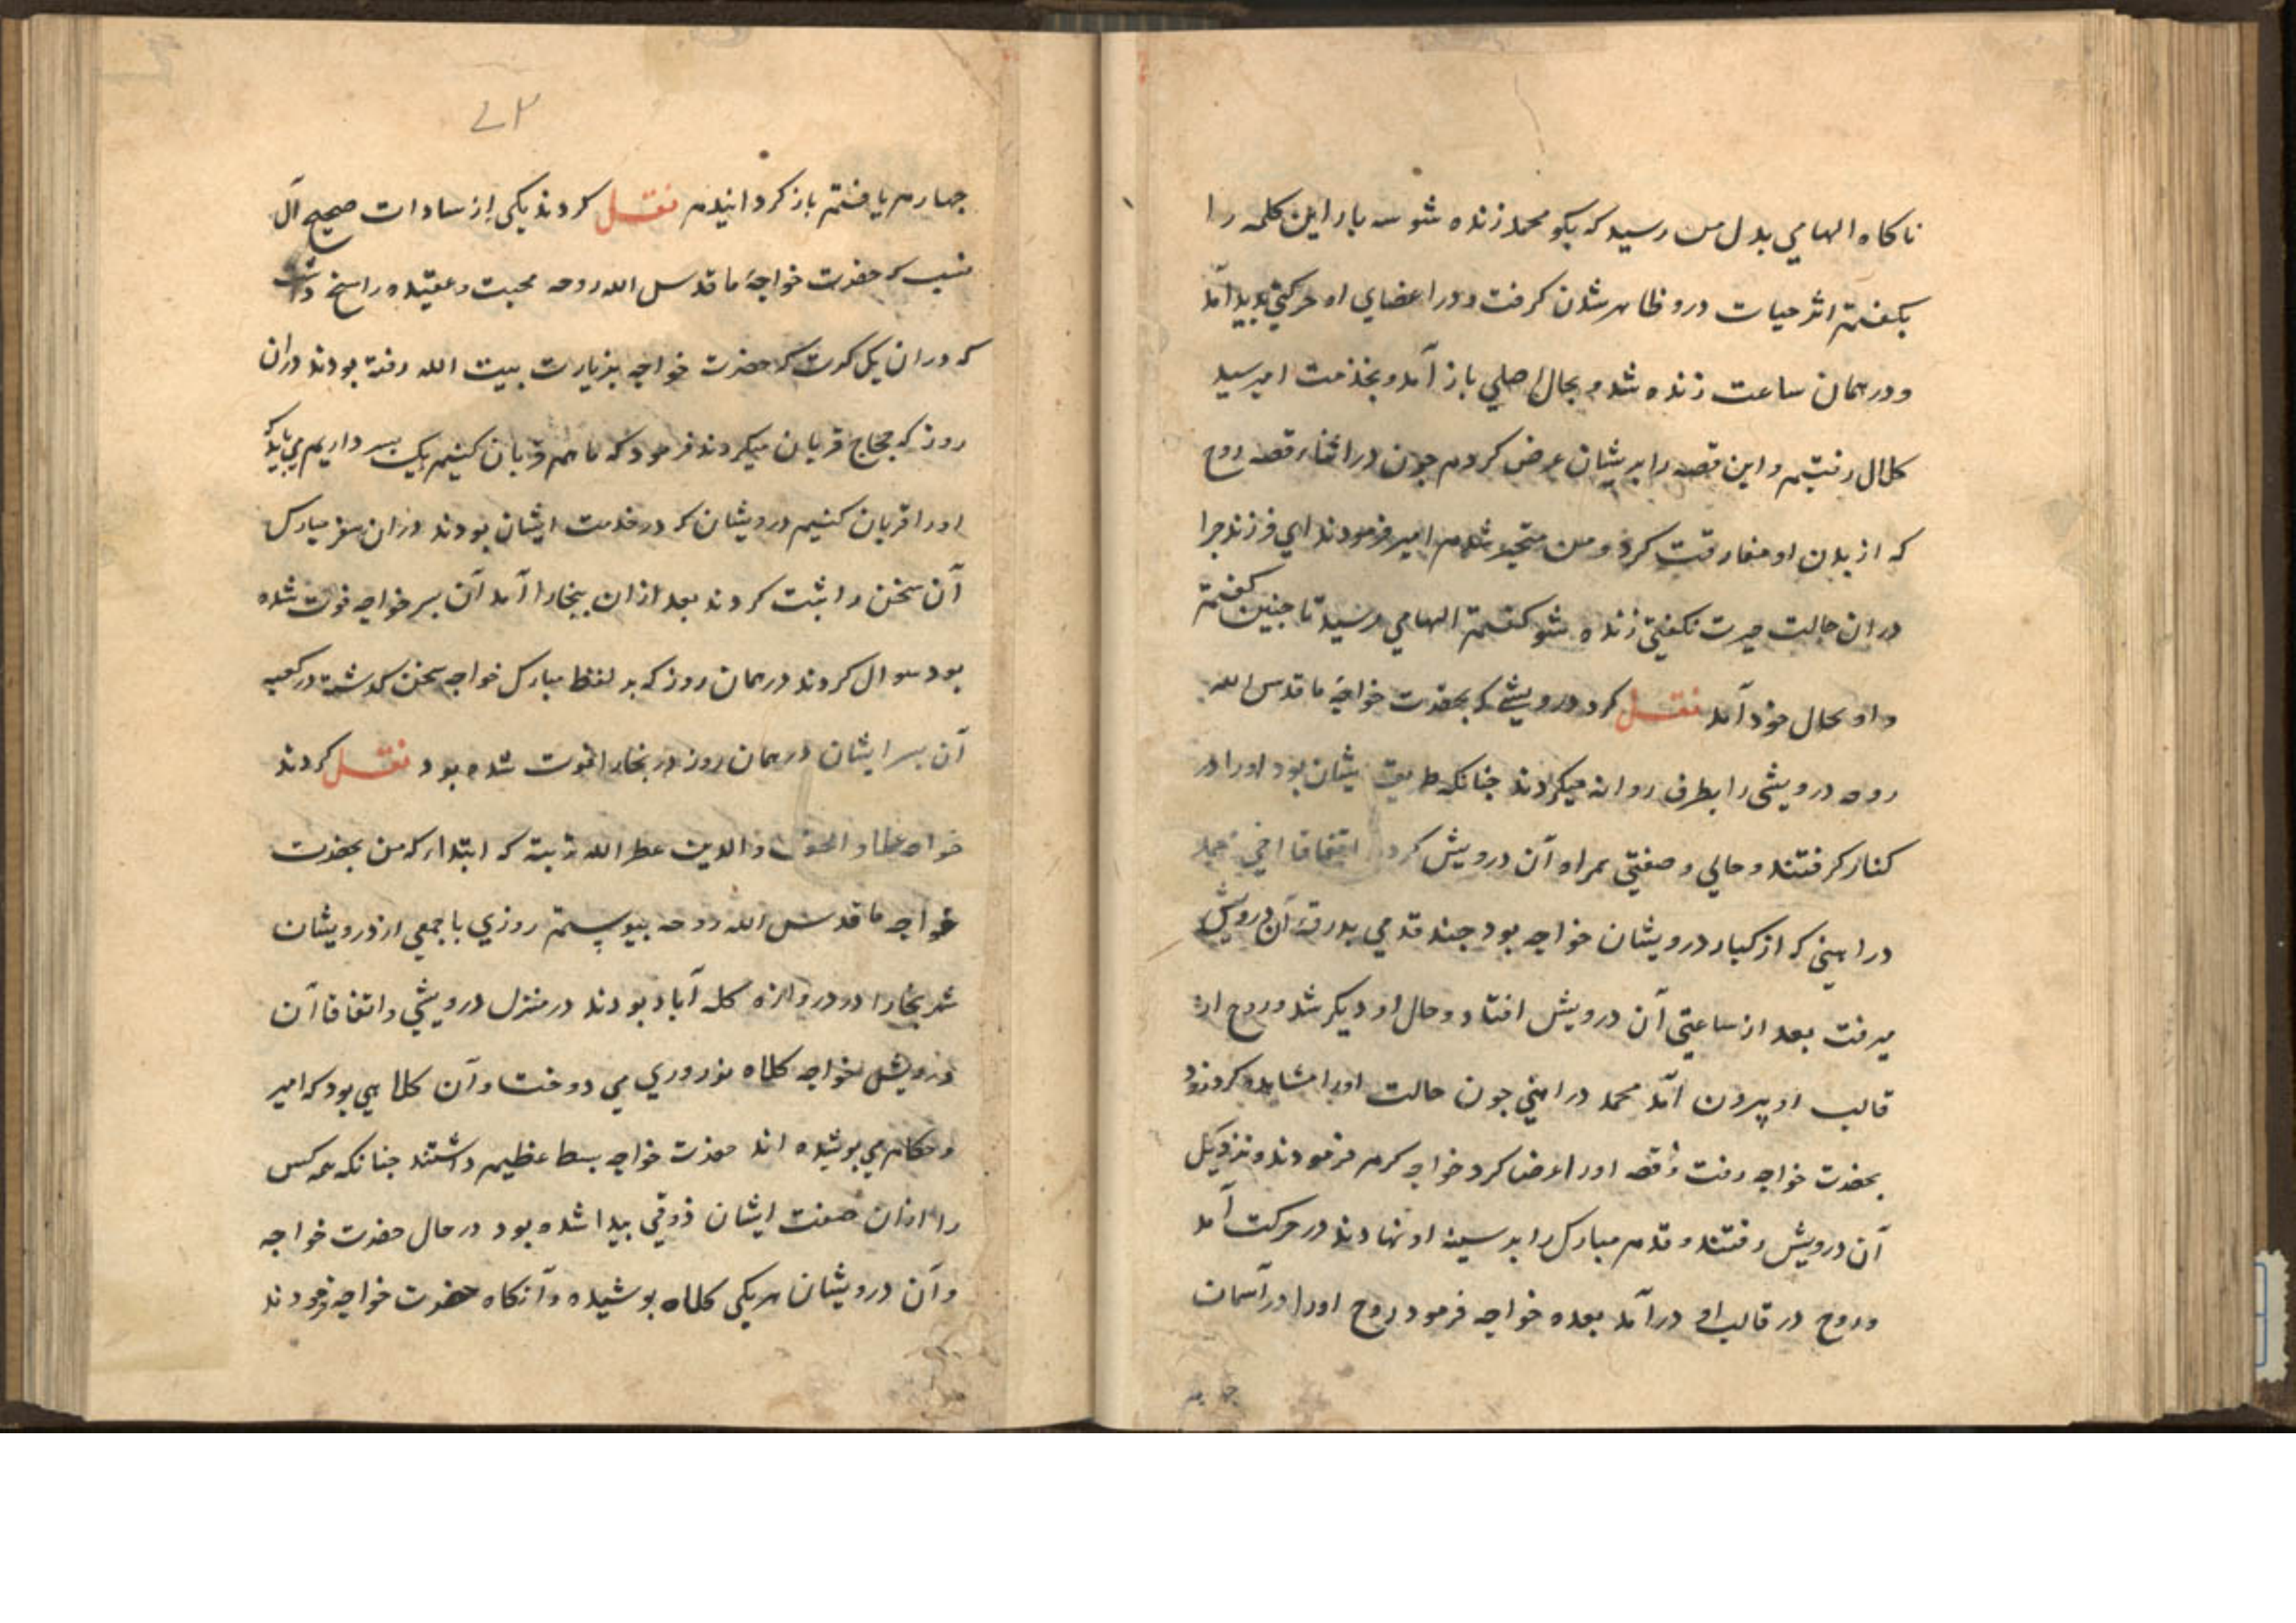 ناكاه الهامي بدل من رسيد كه بكو محمد زنده شو سه بار اين كلمه را
بكفتم اثر حيات درو ظاهر شدن كرفت و در اعضاي او حركتي بديد آمد
و در همان ساعت زنده شد و بحال اصلي باز آمد و بخدمت امير سيد
كلال رفتيم و اين قصه را بريشان عرض كردم جون در اثناء قصه روح
كه از بدن او مفارقت كرد و من متحير شدم امير فرمودند اي فرزند جرا
دران حالت حيرت نكفتي زنده شو كفتم الهامي رسيد تا جنين كفتم
و او بحال خود آمد نقل كرد درويشي كه بحضرت خواجهٔ ما قدس الله
روحه درويشي را بطرف روانه ميكردند جنانكه طريقت ايشان بود اورا در
كنار كرفتند و حالي و صفتي همراه آن درويش كرد اتفاقا اخي محمد
دراهيني كه از كبار درويشان خواجه بود جند قدمي بدرقهٔ آن درويش
ميرفت بعد از ساعتي آن درويش افتاد و حال او ديكر شد و روح از
قالب او بيرون آمد محمد دراهيني جون حالت اورا مشاهده كرد زود
بحضرت خواجه رفت و قصه اورا عرض كرد خواجه كرم فرمودند و نزديك
آن درويش رفتند و قدم مبارك را بر سينهٔ او نهادند در حركت آمد
و روح در قالب او درآمد بعده خواجه فرمود روح اورا در آسمان
جهارم يافتم باز كردانيدم نقل كردند يكي از سادات صحيح آل
نسب كه حضرت خواجهٔ ما قدس الله روحه محبت و عقيده راسخ داشت
كه دران يك كرت كه حضرت خواجه بزيارت بيت الله رفته بودند دران
روز كه حجاج قربان ميكردند فرمود كه ما هم قربان كنيم يك بسر داريم مي بايد كه
اورا قربان كنيم درويشان كه در خدمت ايشان بودند دران سفر مبارك
آن سخن را ثبت كردند بعد ازان ببخارا آمد آن بسر خواجه فوت شده
بود سوال كردند در همان روز كه بر لفظ مبارك خواجه سخن كذشته در كعبه
آن بسر ايشان در همان روز در بخارا فوت شده بود نقل كردند
خواجه علاء الحق و الدين عطر الله تربته كه ابتدا كه من بحضرت
خواجه ما قدس الله روحه بيوستم روزي با جمعي از درويشان
شهر بخارا در دروازه كله آباد بودند در منزل درويشي و اتفاقا آن
درويش بخواجه كلاه نوروزي مي دوخت و آن كلاهي بود كه امير
و حكام مي بوشيده اند حضرت خواجه بسط عظيم داشتند جنانكه همه كس
را ازان صفت ايشان ذوقي بيدا شده بود در حال حضرت خواجه
و آن درويشان هر يكي كلاه بوشيده و آنكاه حضرت خواجه فرمودند